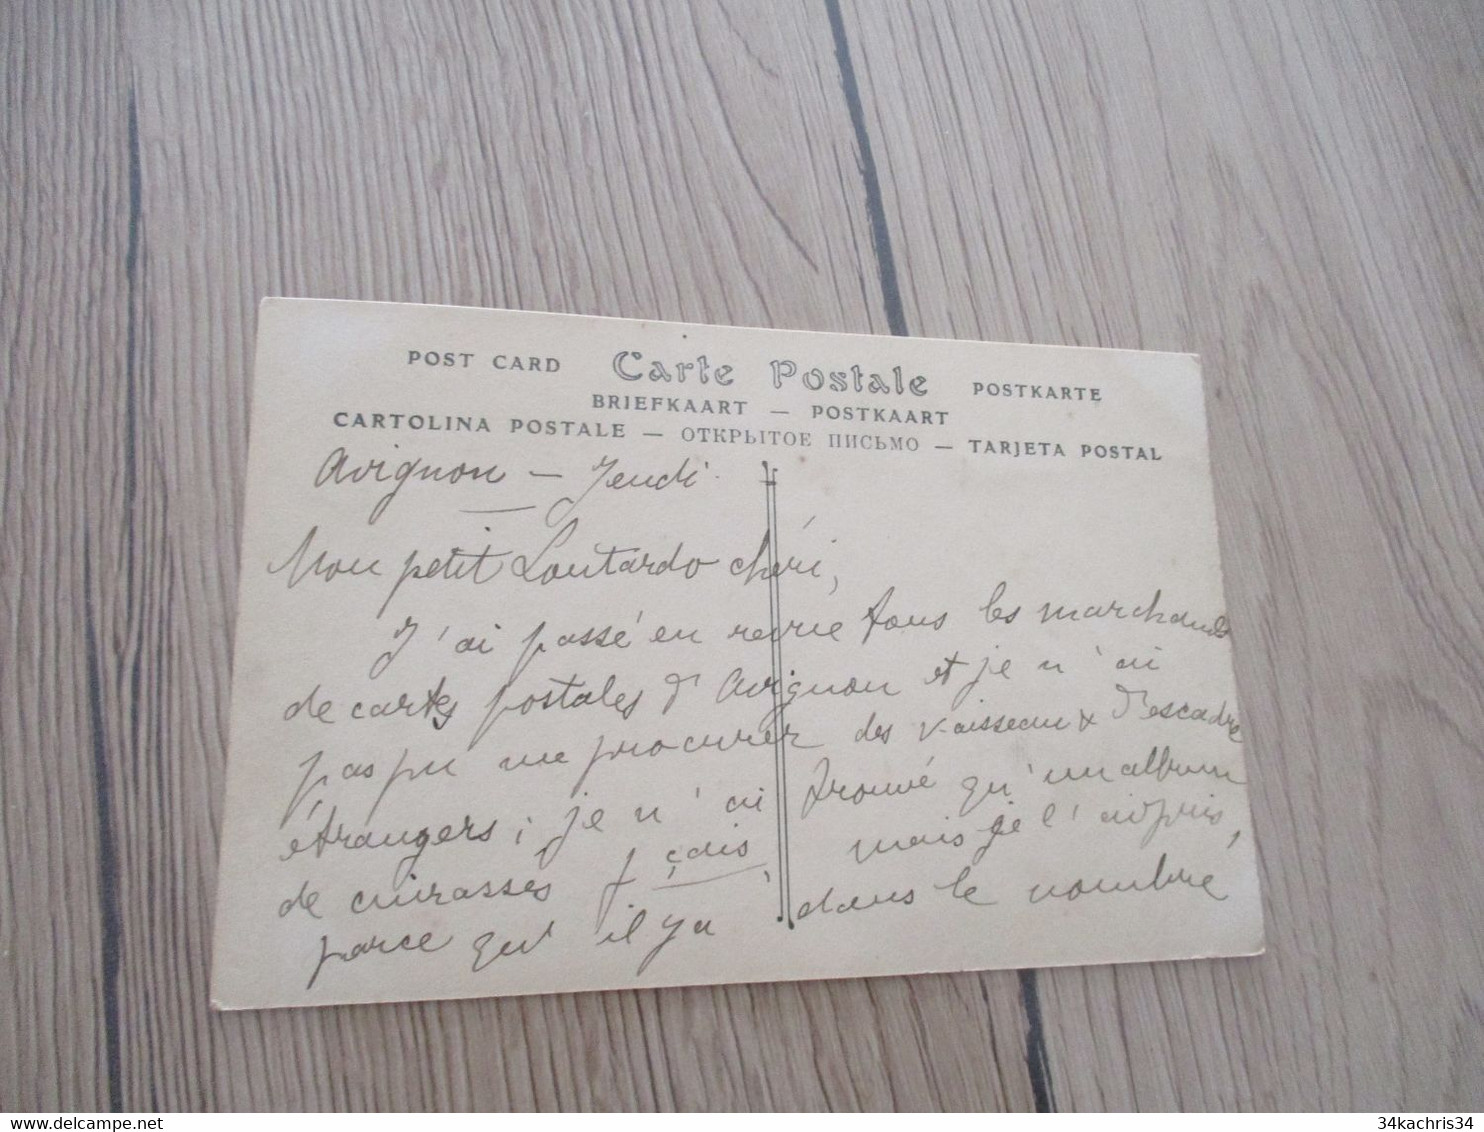 POST CARD Carte Postale POSTKARTE
BRIEFKAART — POSTKAART
CARTOLINA POSTALE — ОТКРЫТОЕ ПИСЬМО — TARJETA POSTAL
Avignon — Jeudi
Mon petit Loutardo chéri,
J'ai passé en revue tous les marchands
de cartes postales d'Avignon et je n'ai
pas pu me procurer des vaisseaux d'escadre
étrangers ; je n'ai trouvé qu'un album
de cuirassés fçais, mais je l'ai pris,
parce qu'il y a dans le nombre
34kachris34
34kachris34